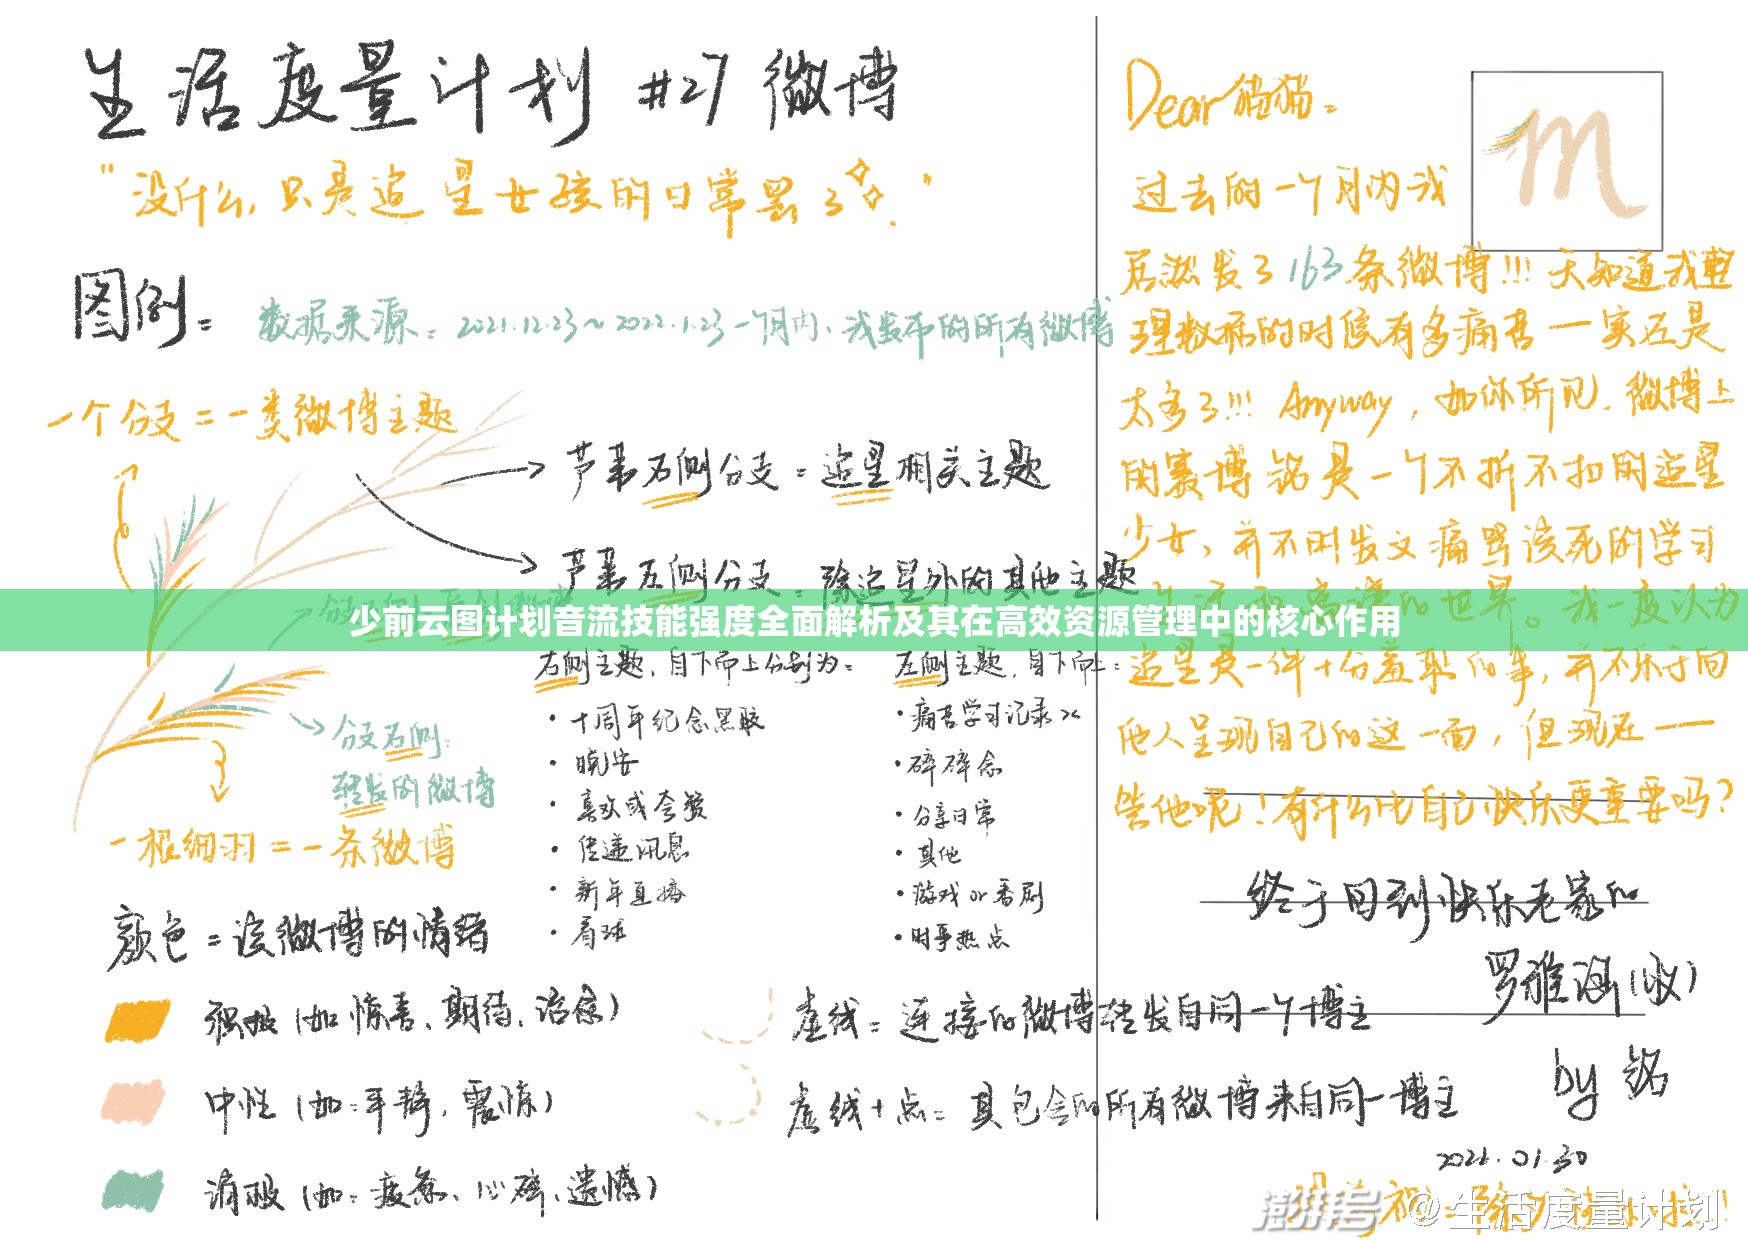 生活度量计划 #27 微博
"没什么,只是追星女孩的日常罢了。"
图例:
数据来源:2021.12.23~2022.1.23一个月内,我发布的所有微博
一个分支=一类微博主题
芦苇右侧分支=追星相关主题
芦苇左侧分支=除追星外的其他主题
少前云图计划音流技能强度全面解析及其在高效资源管理中的核心作用
分支右侧:
转发的微博
一根细羽=一条微博
右侧主题,自下而上分别为:
·十周年纪念黑胶
·晚安
·喜欢或夸赞
·传递讯息
·新年直播
·看球
左侧主题,自下而上:
·痛苦学习记录
·碎碎念
·分享日常
·其他
·游戏or番剧
·时事热点
颜色=该微博的情绪
积极(如惊喜、期待、治愈)
中性(如:平静,震惊)
消极(如:疲惫、心碎、遗憾)
虚线=连接的微博转发自同一个博主
虚线+点=其包含的所有微博来自同一博主
Dear 猫猫:
m
过去的一个月内我
居然发了163条微博!!!天知道我整
理数据的时候有多痛苦一实在是
太多了!!! Anyway,如你所见,微博上
的赛博铭是一个不折不扣的追星
少女,并不时发文痛骂该死的学习
的世界。我一度以为
追星是一件十分羞耻的事,并不乐于向
他人呈现自己的这一面,但现在——
告他呢!有什么比自己快乐更重要吗?
终于回到快乐老家的
罗雅涵(收)
by 铭
2022.01.30
澎湃号 @生活度量计划